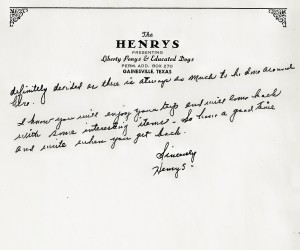 The
HENRYS
PRESENTING
Liberty Ponys & Educated Dogs
PERM. ADD. BOX 270
GAINESVILLE, TEXAS
definitely decided as there is always so much to be done around
here.
I know you will enjoy your trip and will come back
with some interesting items - So have a good time
and write when you get back.
Sincerely
Henrys